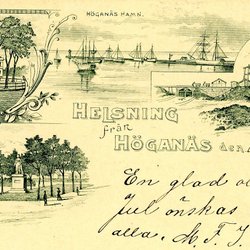 HÖGANÄS HAMN.
HELSNING
från
HÖGANÄS den
En glad o
Jul önskas
alla, M. F. J.